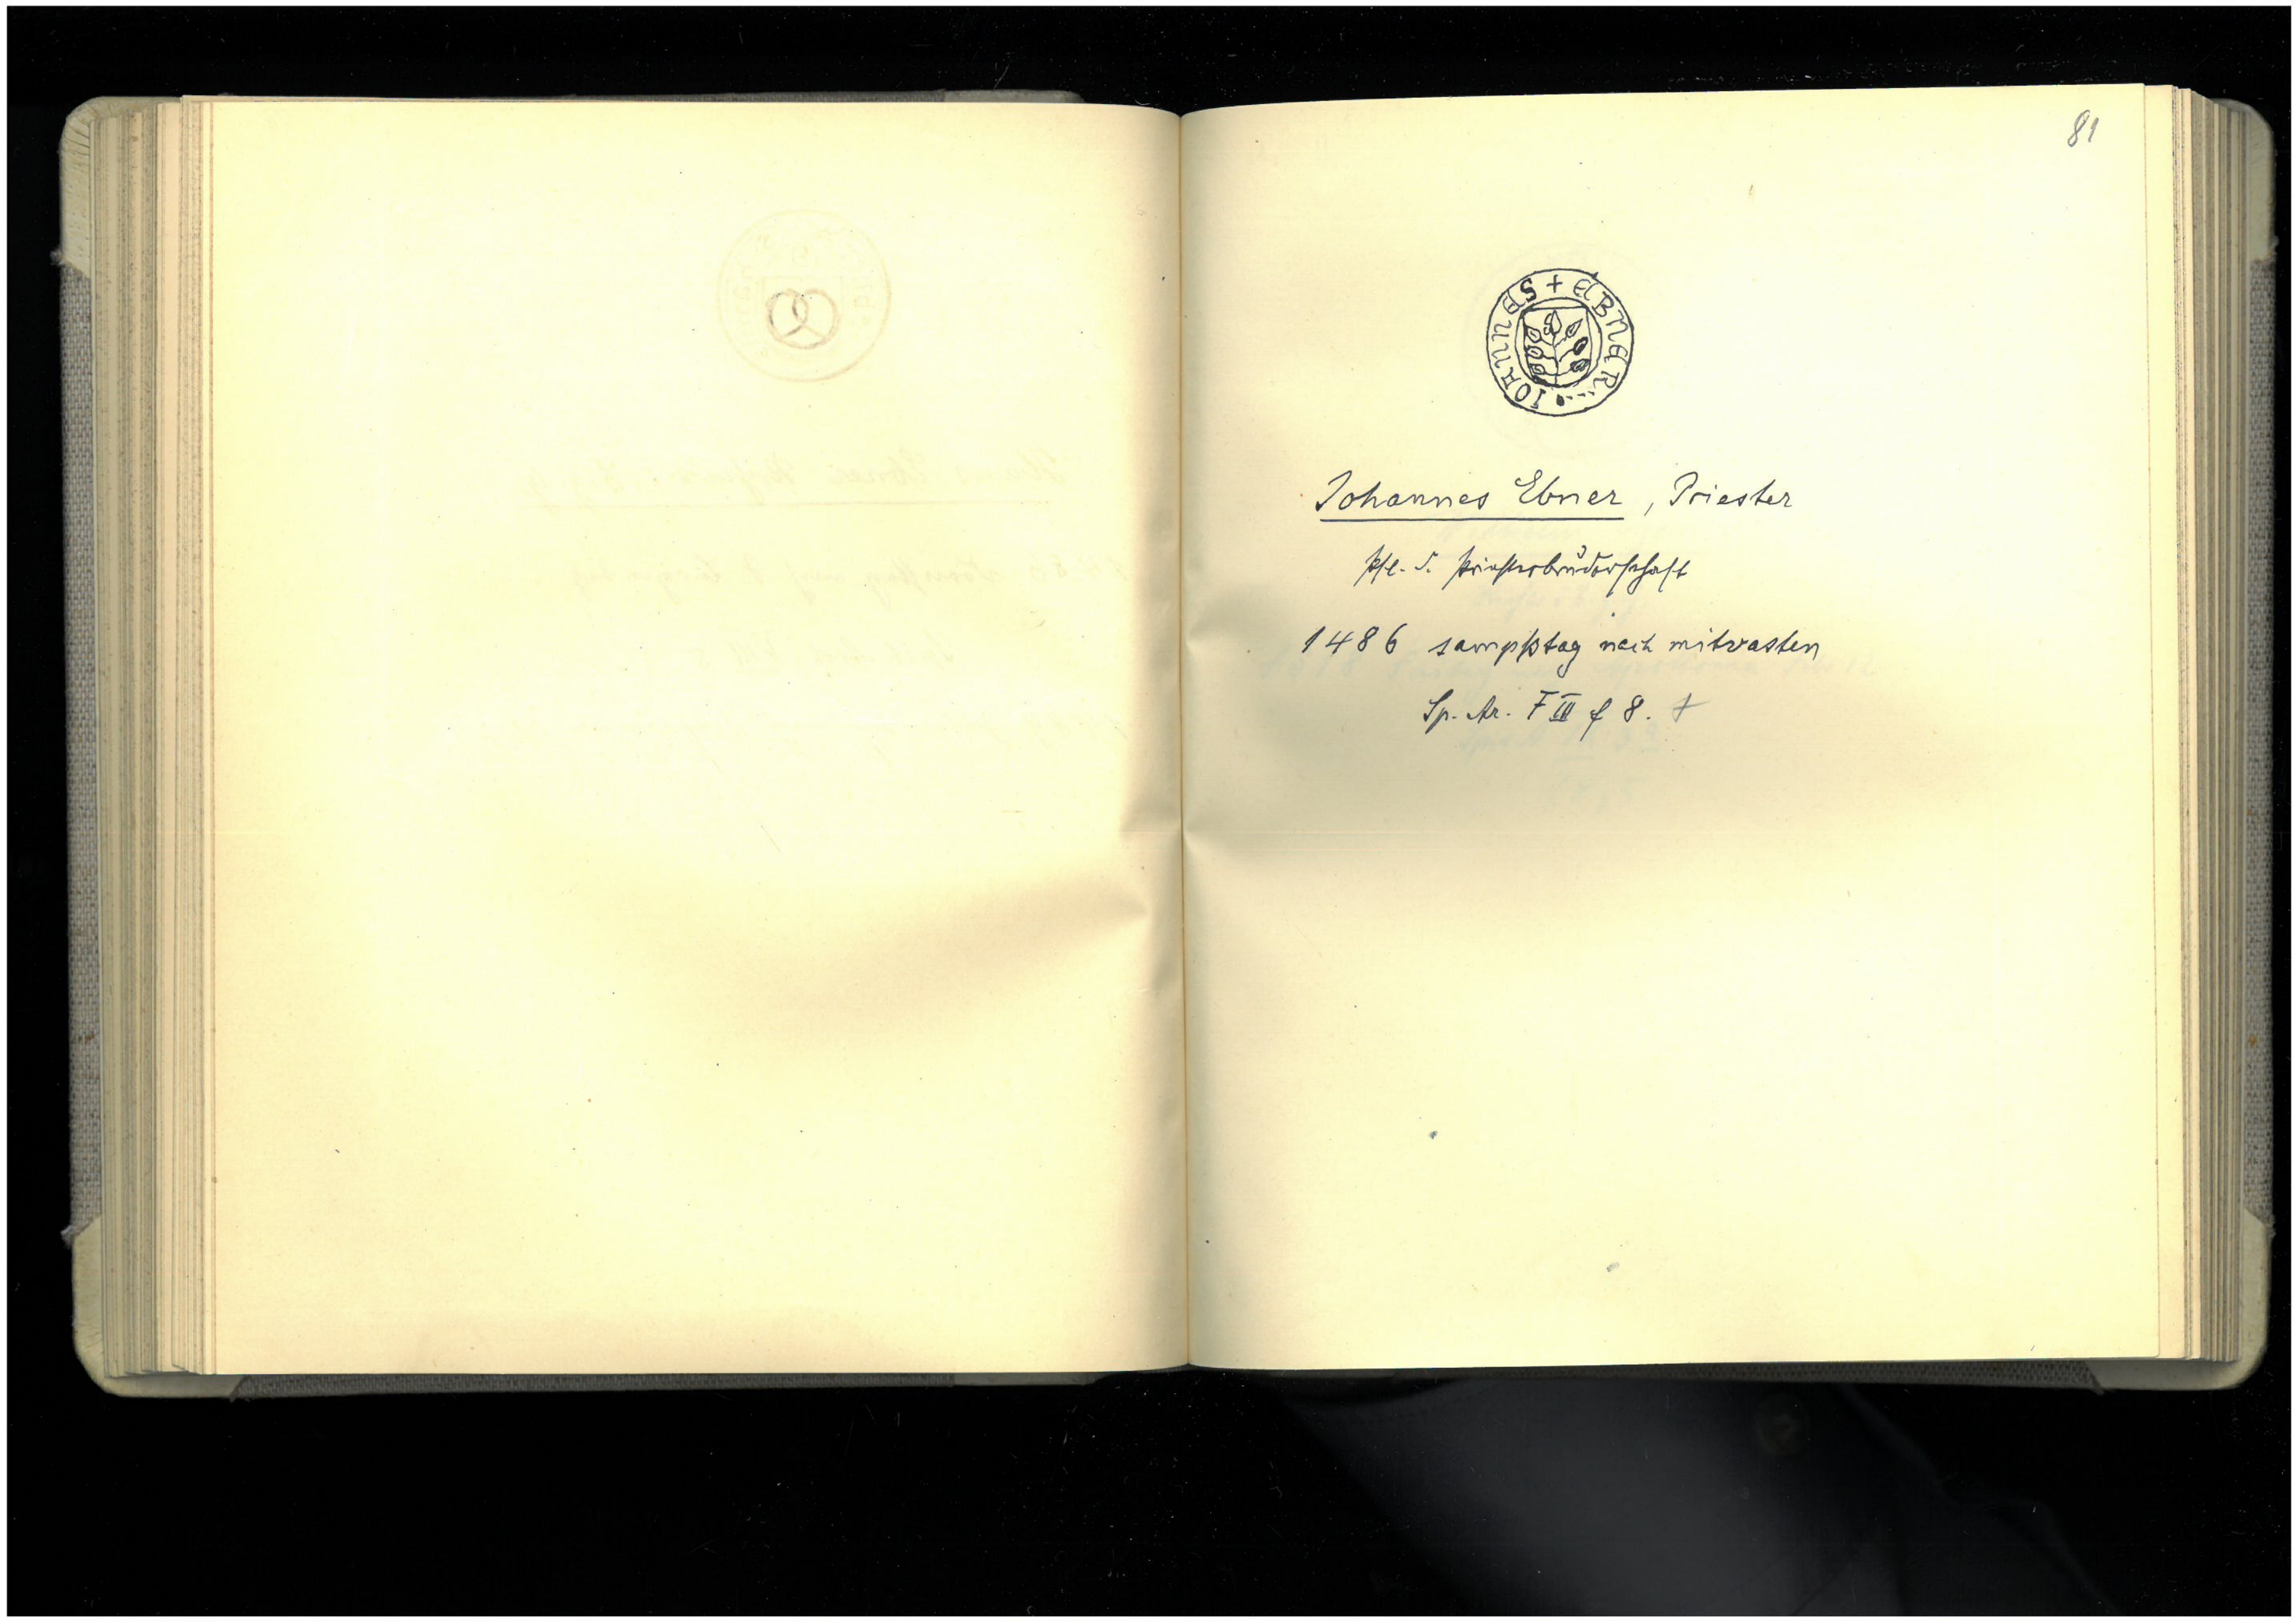 81
IOHNNES + EBNER
Johannes Ebner, Priester
Pfl. d. Priesterbruderschaft
1486 sampßtag nach mitvasten
Sp. Ar. F III f 8. +